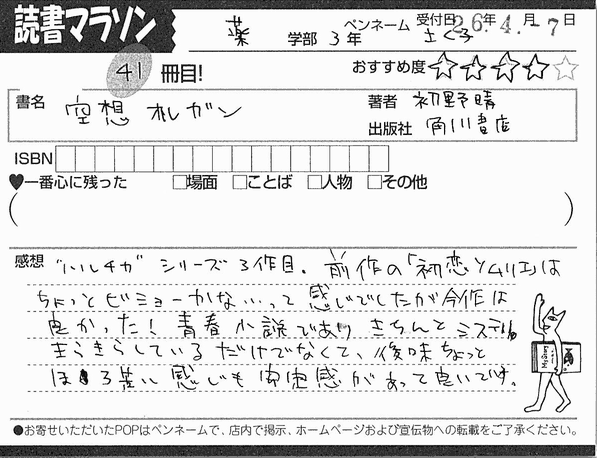 読書マラソン
薬 学部 3年
ペンネーム
受付日 26年 4.月-7日
41冊目!
おすすめ度 ★★★★☆
書名 空想オルガン
著者 初野晴
出版社 角川書店
ISBN
♥一番心に残った □場面 □ことば □人物 □その他
( )
感想 "ハルチカ"シリーズ3作目。前作の「初恋ソムリエ」は
ちょっとビミョーかな…って感じでしたが今作は
良かった!青春小説であり きちんとミステリ
しているだけでなくて、後味ちょっと
ほろ苦い感じも 安定感があって良いです。
●お寄せいただいたPOPはペンネームで、店内で掲示、ホームページおよび宣伝物への転載をご了承ください。